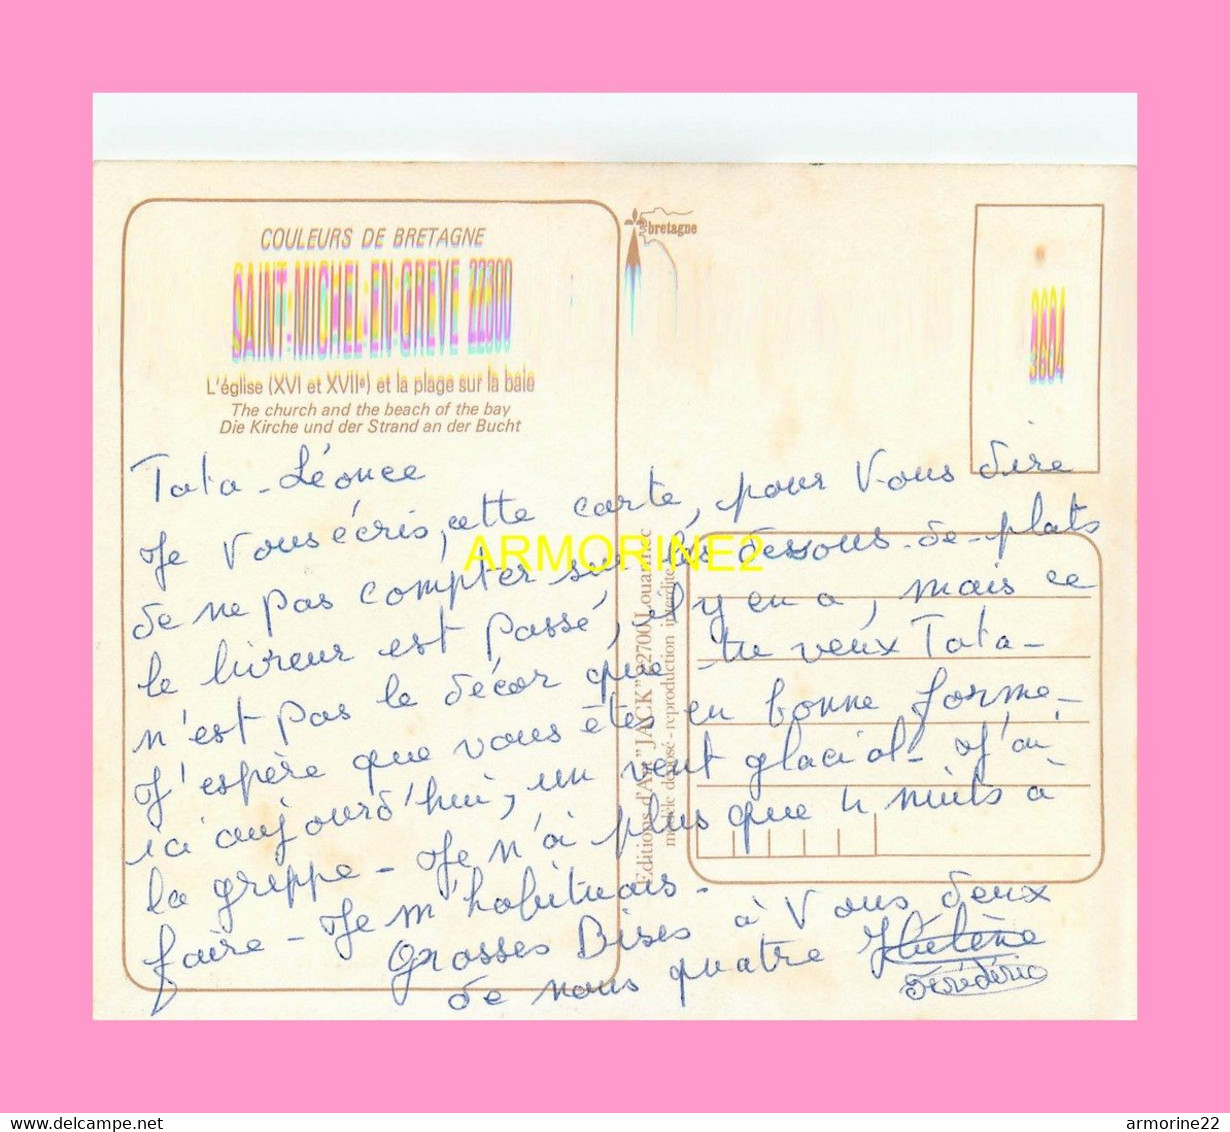 COULEURS DE BRETAGNE
SAINT-MICHEL-EN-GREVE 22300
L'église (XVI et XVIIe) et la plage sur la baie
The church and the beach of the bay
Die Kirche und der Strand an der Bucht
bretagne
3604
Tata - Léonce
Je vous écris, cette carte, pour Vous dire
de ne pas compter sur les dessous-de-plats
le livreur est passé, il y en a, mais ce
n'est pas le décor que tu veux Tata-
J'espère que vous êtes en bonne forme-
ici aujourd'hui, un vent glacial- J'ai
la grippe - Je n'ai plus que 4 nuits à
faire - Je m'habituais -
Grosses Bises à Vous deux
de nous quatre Hélène
Frédéric
Editions d'Art "JACK" 22700 Louannec
modèle déposé - reproduction interdite
ARMORINE2
delcampe.net
armorine22